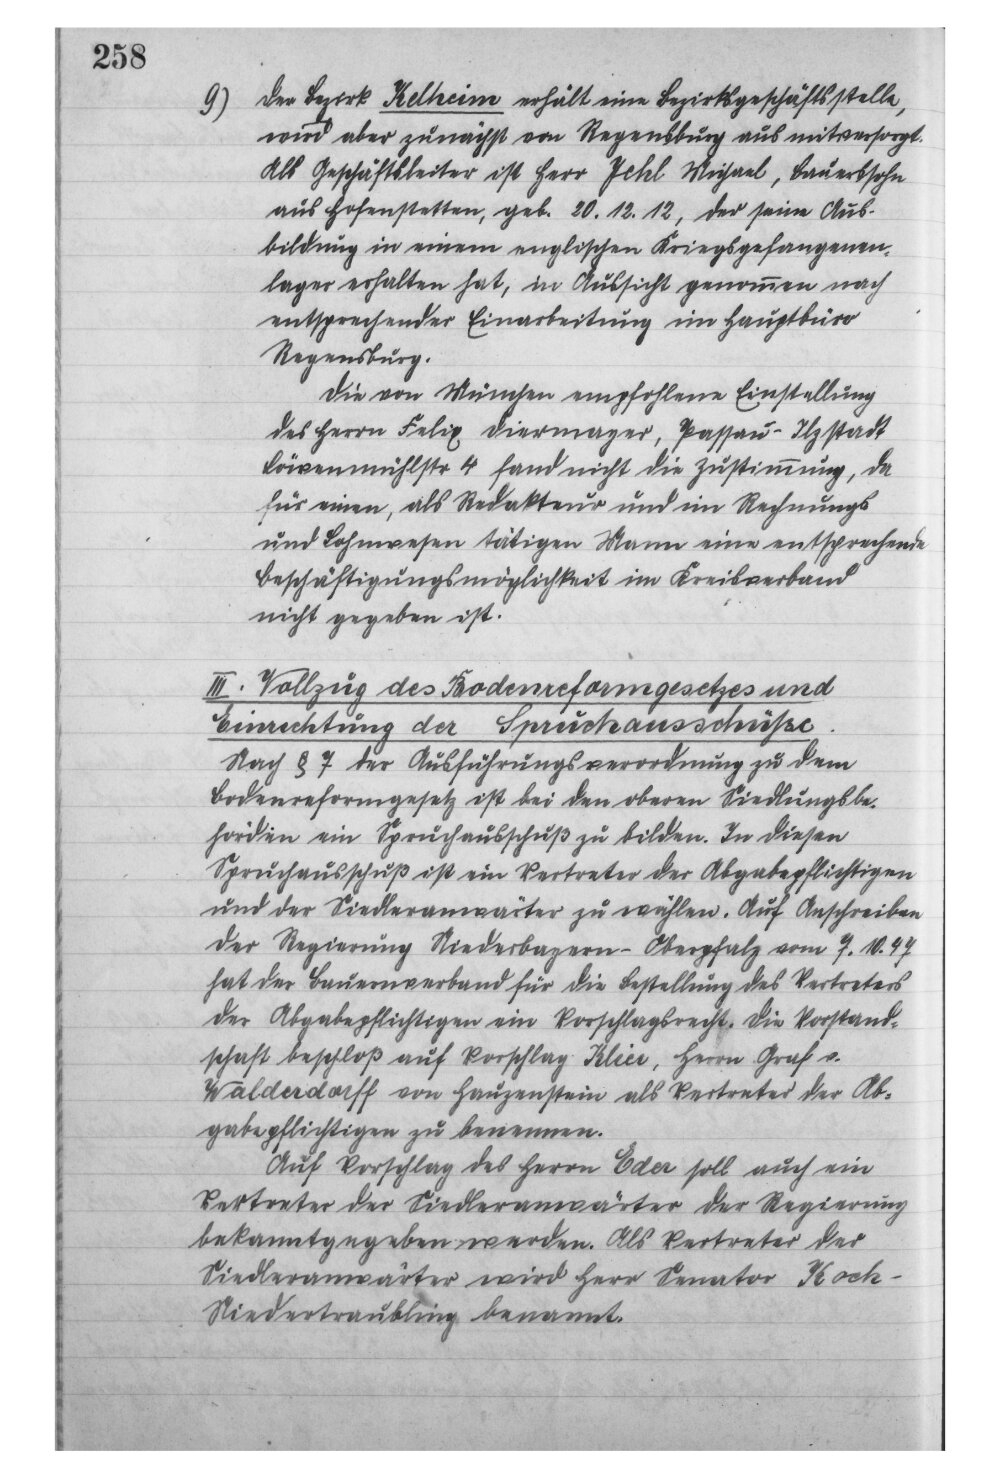 258
9) Der Bezirk Kelheim erhält eine Bezirksgeschäftsstelle,
wird aber zunächst von Regensburg aus mitversorgt.
Als Geschäftsleiter ist Herr Jehl Michael, Bauerssohn
aus Hofenstetten, geb. 20. 12. 12, der seine Aus-
bildung in einem englischen Kriegsgefangenen-
lager erhalten hat, in Aussicht genom̄en nach
entsprechender Einarbeitung im Hauptbüro
Regensburg.
Die von München empfohlene Einstellung
des Herrn Felix Diermayer, Passau-Ilzstadt
Löwenmühlstr 4 fand nicht die Zustim̄ung, da
für einen, als Redakteur und im Rechnungs
und Lohnwesen tätigen Mann eine entsprechende
Beschäftigungsmöglichkeit im Kreisverband
nicht gegeben ist.
III. Vollzug des Bodenreformgesetzes und
Einrichtung der Spruchausschüße.
Nach § 7 der Ausführungsverordnung zu dem
Bodenreformgesetz ist bei den oberen Siedlungsbe-
hörden ein Spruchausschuß zu bilden. In diesen
Spruchausschuß ist ein Vertreter der Abgabepflichtigen
und der Siedleranwärter zu wählen. Auf Anschreiben
der Regierung Niederbayern-Oberpfalz vom 7. 10. 47
hat der Bauernverband für die Bestellung des Vertreters
der Abgabepflichtigen ein Vorschlagsrecht. Die Vorstand-
schaft beschloß auf Vorschlag Klier, Herrn Graf v.
Walderdorff von Hauzenstein als Vertreter der Ab-
gabepflichtigen zu benennen.
Auf Vorschlag des Herrn Eder soll auch ein
Vertreter der Siedleranwärter der Regierung
bekanntgegeben werden. Als Vertreter der
Siedleranwärter wird Herr Senator Koch-
Niedertraubling benannt.